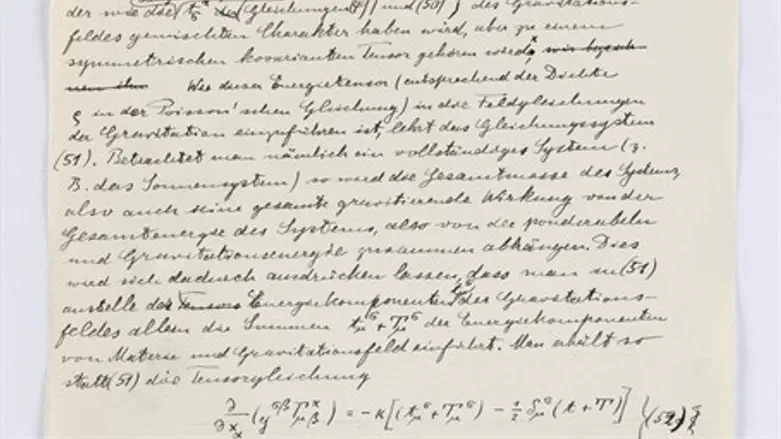 der wie das (t_μ^σ Gleichungen und (50)) des Gravitations-
feldes gemischten Charakter haben wird, aber zu einem
symmetrischen kovarianten Tensor gehören wird*, wir bezeich-
nen ihn Wie dieser Energietensor (entsprechend der Dichte
ρ in der Poisson'schen Gleichung) in die Feldgleichungen
der Gravitation einzuführen ist, lehrt das Gleichungssystem
(51). Betrachtet man nämlich ein vollständiges System (z.
B. das Sonnensystem) so wird die Gesamtmasse des Systems,
also auch seine gesamte gravitierende Wirkung von der
Gesamtenergie des Systems, also von der ponderabeln
und Gravitationsenergie zusammen abhängen. Dies
wird sich dadurch ausdrücken lassen, dass man in (51)
anstelle der Tensors Energiekomponenten t_μ^σ des Gravitations-
feldes allein die Summen t_μ^σ + T_μ^σ der Energiekomponenten
von Materie und Gravitationsfeld einführt. Man erhält so
statt (51) die Tensorgleichung
∂/∂x_α (g^σβ Γ_μβ^α) = -κ[(t_μ^σ + T_μ^σ) - 1/2 δ_μ^σ (t + T)] } (52)